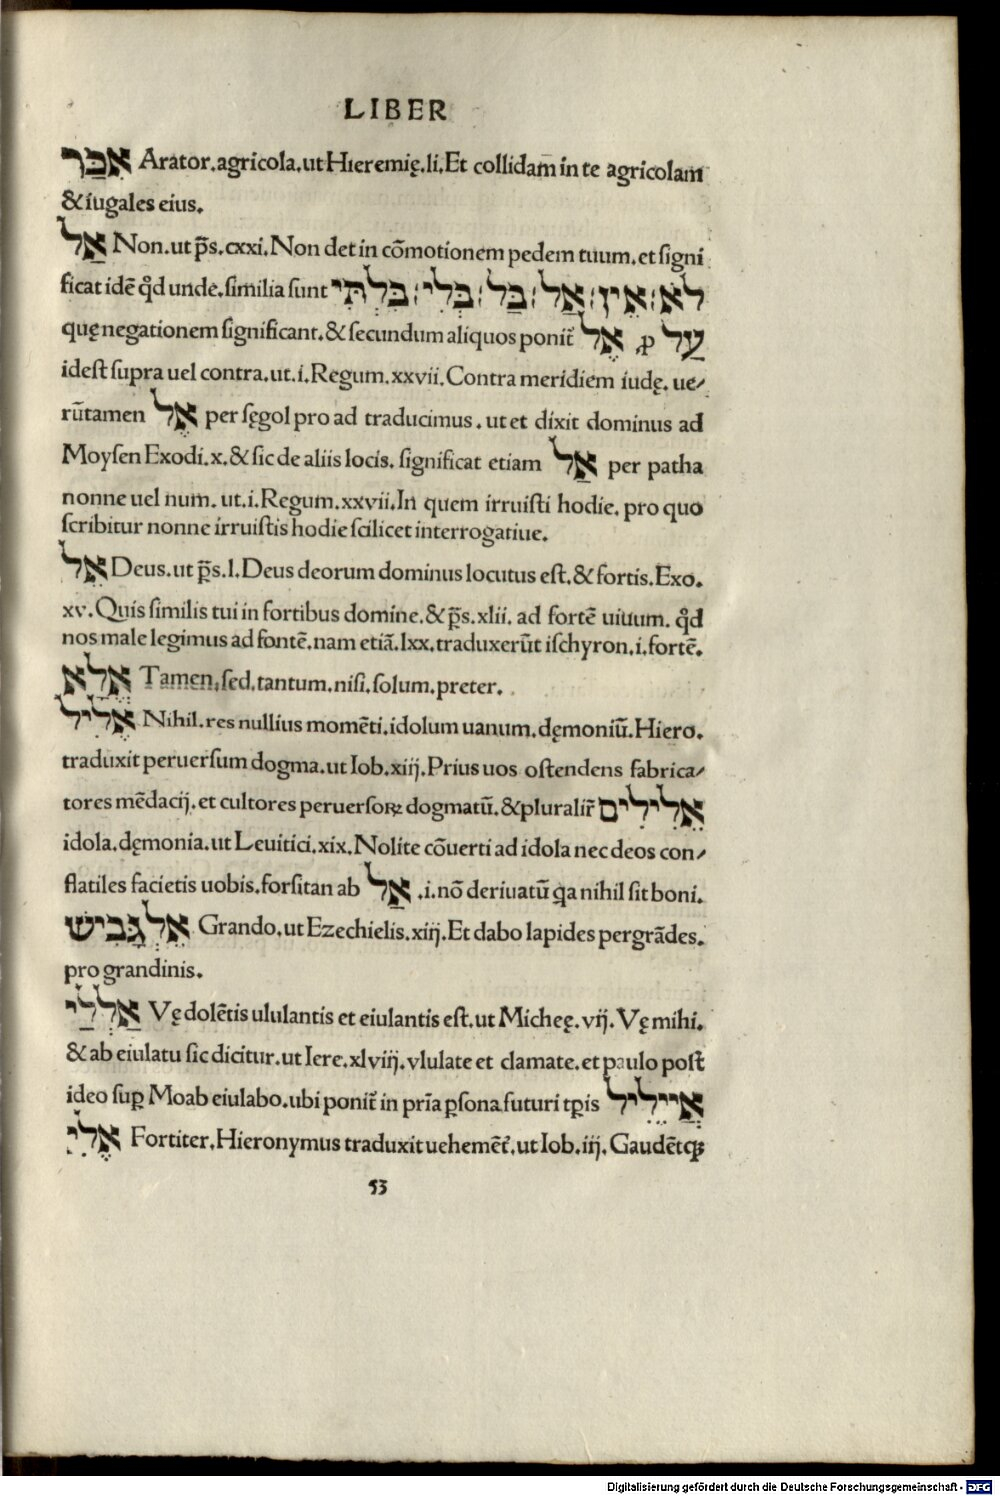 LIBER
אִכָּר Arator.agricola.ut Hieremię.li.Et collidam̄ in te agricolam
& iugales eius.
אַל Non.ut p̄s.cxxi.Non det in cōmotionem pedem tuum.et signi
ficat idē qd̄ unde.similia sunt לֹא׃ אֵין׃ אַל׃ בַּל׃ בְּלִי׃ בִּלְתִּי
quę negationem significant.& secundum aliquos ponit᷑ אֶל ꝓ עַל
idest supra uel contra.ut.i.Regum.xxvii.Contra meridiem iudę. ue/
rūtamen אֶל per sęgol pro ad traducimus.ut et dixit dominus ad
Moysen Exodi.x.& sic de aliis locis. significat etiam אַל per patha
nonne uel num. ut.i.Regum.xxvii.In quem irruisti hodie. pro quo
scribitur nonne irruistis hodie scilicet interrogatiue.
אֵל Deus.ut p̄s.l.Deus deorum dominus locutus est.& fortis.Exo.
xv.Quis similis tui in fortibus domine.& p̄s.xlii. ad fortē uiuum. qd̄
nos male legimus ad fontē.nam etiā.lxx.traduxerūt ischyron.i.fortē.
אֶלָּא Tamen.sed.tantum.nisi.solum.preter.
אֱלִיל Nihil.res nullius momēti.idolum uanum.dęmoniū.Hiero.
traduxit peruersum dogma.ut Iob.xiij.Prius uos ostendens fabrica/
tores mēdacij.et cultores peruersoꝝ dogmatū.&pluralir᷑ אֱלִילִים
idola.dęmonia.ut Leuitici.xix.Nolite cōuerti ad idola nec deos con/
flatiles facietis uobis.forsitan ab אַל .i.nō deriuatū qa nihil sit boni.
אֶלְגָּבִישׁ Grando.ut Ezechielis.xiij.Et dabo lapides pergrādes.
pro grandinis.
אַלְלַי Vę dolētis ululantis et eiulantis est.ut Micheę.vij.Vę mihi.
& ab eiulatu sic dicitur.ut Iere.xlviij.vlulate et clamate.et paulo post
ideo suꝑ Moab eiulabo.ubi ponit᷑ in pria ꝑsona futuri tꝑis אֲיֵילֵיל
אֱלִי Fortiter.Hieronymus traduxit uehemēt᷑.ut Iob.iij.Gaudētꝙ
53
Digitalisierung gefördert durch die Deutsche Forschungsgemeinschaft - DFG